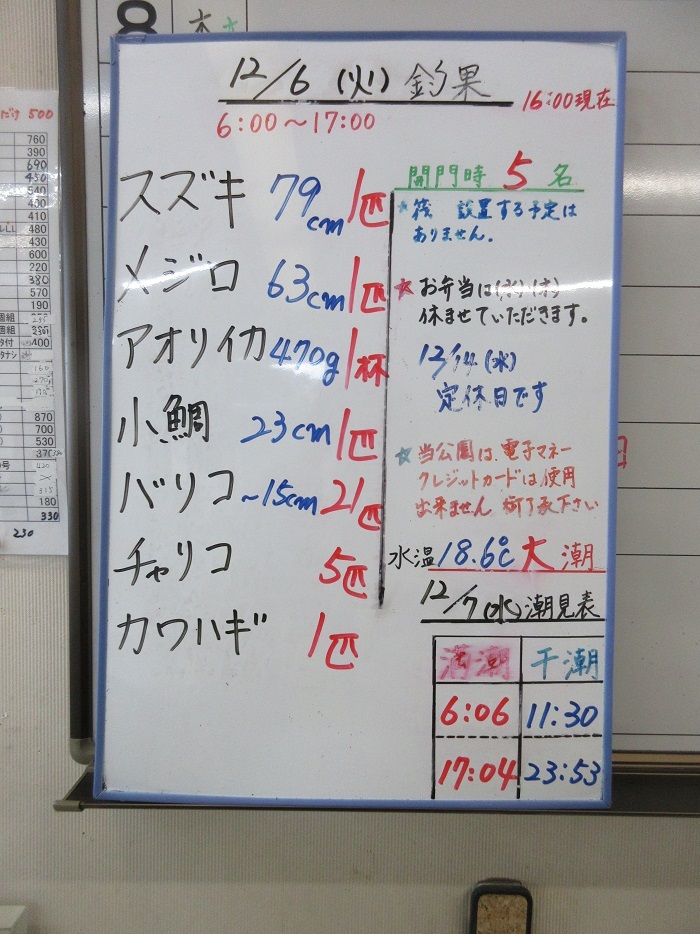 12/6(火)釣果
16:00現在
6:00~17:00
スズキ 79cm 1匹
メジロ 63cm 1匹
アオリイカ 470g 1杯
小鯛 23cm 1匹
バリコ ~15cm 21匹
チャリコ 5匹
カワハギ 1匹
開門時 5名
☆筏 設置する予定は
ありません。
☆お弁当は(水)(木)
休ませていただきます。
12/14(水)
定休日です
☆当公園は、電子マネー
クレジットカードは使用
出来ません 御了承下さい
水温 18.6℃ 大潮
12/7(水)潮見表
満潮 干潮
6:06 11:30
17:04 23:53
8
木
500
760
390
690
450
540
430
410
480
430
600
220
380
570
190
400
870
700
530
180
330
230